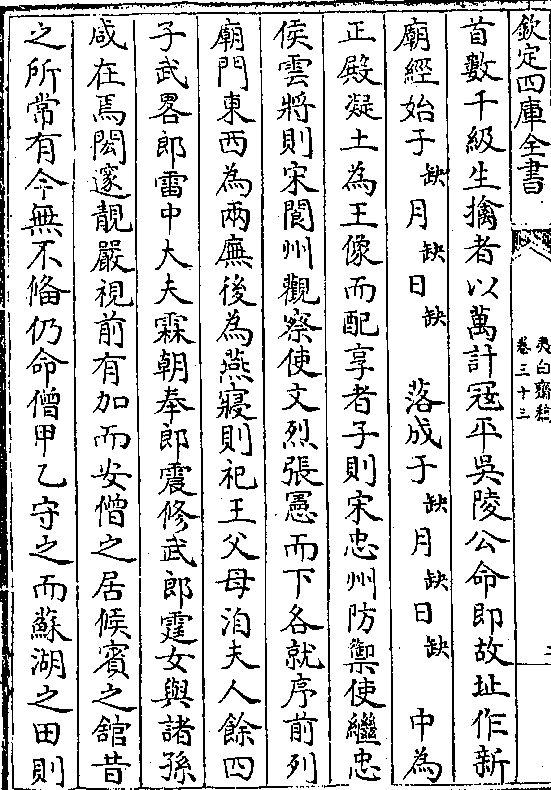 欽定四庫全書
夷白齋稿
卷三十三
二
首數千級生擒者以萬計冦平吳陵公命即故址作新
廟經始于缺月缺日缺落成于缺月缺日缺中為
正殿凝土為王像而配享者子則宋忠州防禦使繼忠
侯雲將則宋閬州觀察使文烈張憲而下各就序前列
廟門東西為兩廡後為燕寢則祀王父母洎夫人餘四
子武畧郎雷中大夫霖朝奉郎震修武郎霆女與諸孫
咸在焉閎邃靚嚴視前有加而安僧之居候賓之舘昔
之所常有今無不俻仍命僧甲乙守之而蘇湖之田則